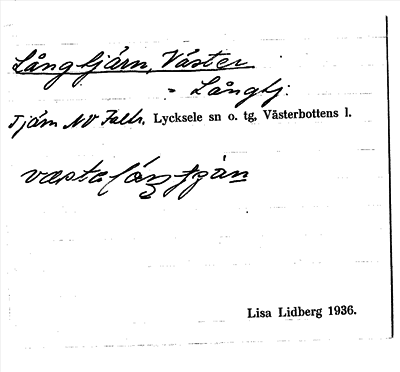 Långtjärn, Väster
- Långtj:
Tjärn NV Lycksele sn o. tg, Västerbottens l.
Lisa Lidberg 1936.